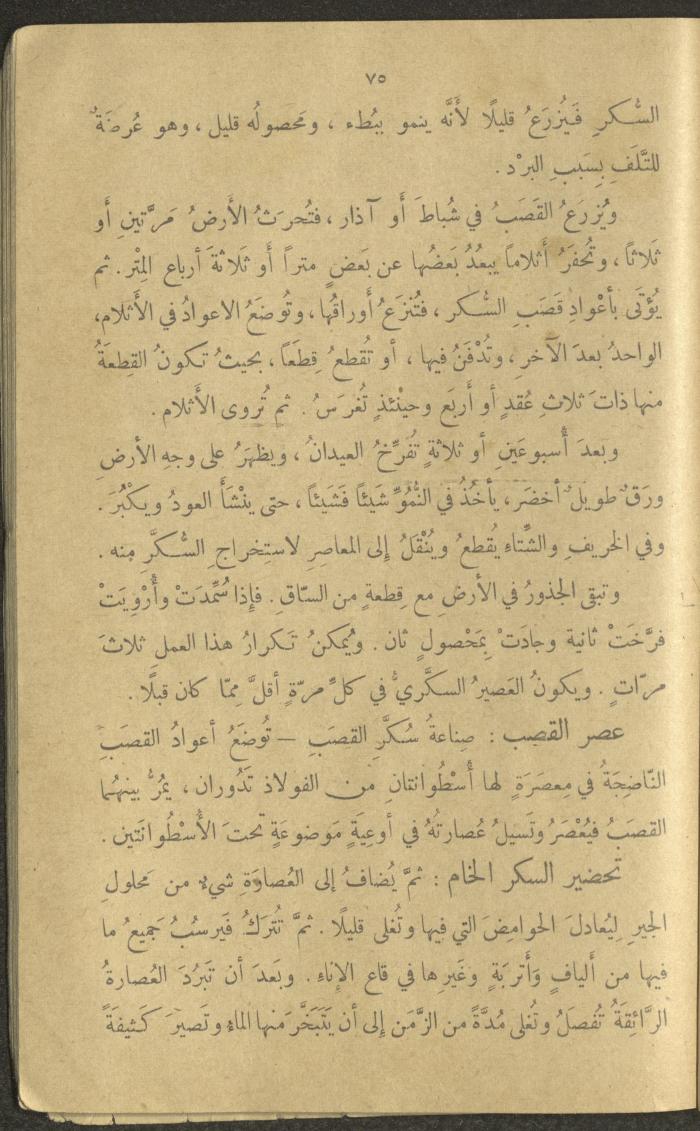 ٧٥
السُّكرِ فَيُزْرَعُ قليلًا لأَنَّه ينمو ببُطء ، ومَحصولُه قليل ، وهو عُرضَةٌ
للتَّلَفِ بِسَبَبِ البرْد .
ويُزرَعُ القَصَبُ في شُباطَ أَو آذار ، فتُحرَثُ الأَرضُ مَرَّتينِ أَو
ثَلاثاً ، وتُحفَرُ أَثلاماً يبعُدُ بَعضُها عن بَعضٍ متراً أَو ثَلاثَةَ أرباع المِتْر . ثم
يُؤتَى بأعْوادِ قَصَبِ السُّكر ، فتُنزَعُ أَوراقُها ، وتُوضَعُ الاعوادُ في الأَثلام ،
الواحدُ بعدَ الآخرِ ، وتُدْفَنُ فيها ، أو تُقطعُ قِطَعَاً ، بحيثُ تكونُ القِطعَةُ
منها ذاتَ ثلاثِ عُقدٍ أو أَربَع وحينْئذٍ تُغرَسُ . ثم تُروى الأَثلام .
وبعدَ أُسبوعَينِ أو ثلاثةٍ تُفرِّخُ العيدانُ ، ويظهَرُ على وجهِ الأرضِ
ورَقٌ طويلٌ أخضَر ، يأخُذُ في النُّمُوِّ شَيئاً فَشَيئاً ، حتى ينْشَأَ العودُ ويكْبُرَ .
وفي الخريفِ والشِّتاءِ يُقطعُ ويُنْقَلُ إلى المعاصرِ لاستِخراجِ السُّكَّرِ مِنه .
وتبقى الجذورُ في الأرضِ مع قِطعةٍ من السّاقِ . فإذا سُمِّدَتْ وأُرْوِيَتْ
فرَّخَتْ ثانية وجادَتْ بِمَحْصولٍ ثان . ويُمكنُ تَكرارُ هذا العمل ثلاثَ
مرّاتٍ . ويكونُ العَصيرُ السكَّريُّ في كلِّ مرّةٍ أقلَّ مِمّا كان قبلًا .
عصر القصب : صِناعةُ سُكَّرِ القصَبِ — تُوضَعُ أعوادُ القصَبِ
النّاضِجَةُ في مِعصَرَةٍ لها أُسْطُوانتانِ من الفولاذ تَدُوران ، يمُرُّ بينهُما
القصَبُ فيُعْصَرُ وتَسيلُ عُصارتُهُ في أوعِيَةٍ مَوضوعَةٍ تحتَ الأُسْطُوانَتين .
تحضير السكر الخام : ثمَّ يُضافُ إلى العُصاوَةِ شيءٌ من مَحلولِ
الجيرِ لِيُعادلَ الحوامِضَ التي فيها وتُغلى قليلًا . ثمَّ تُترَكُ فَيرسُبُ جَميعُ ما
فيها من أليافٍ وَأَتربَةٍ وغَيرِها في قاعِ الإناءِ . وبَعدَ أن تَبرُدَ العُصارةُ
الرَّائِقَةُ تُفصَلُ وتُغلى مُدَّةً من الزَّمَن إلى أن يَتَبَخَّرَ منها الماءُ وتَصيرَ كَثيفَةً